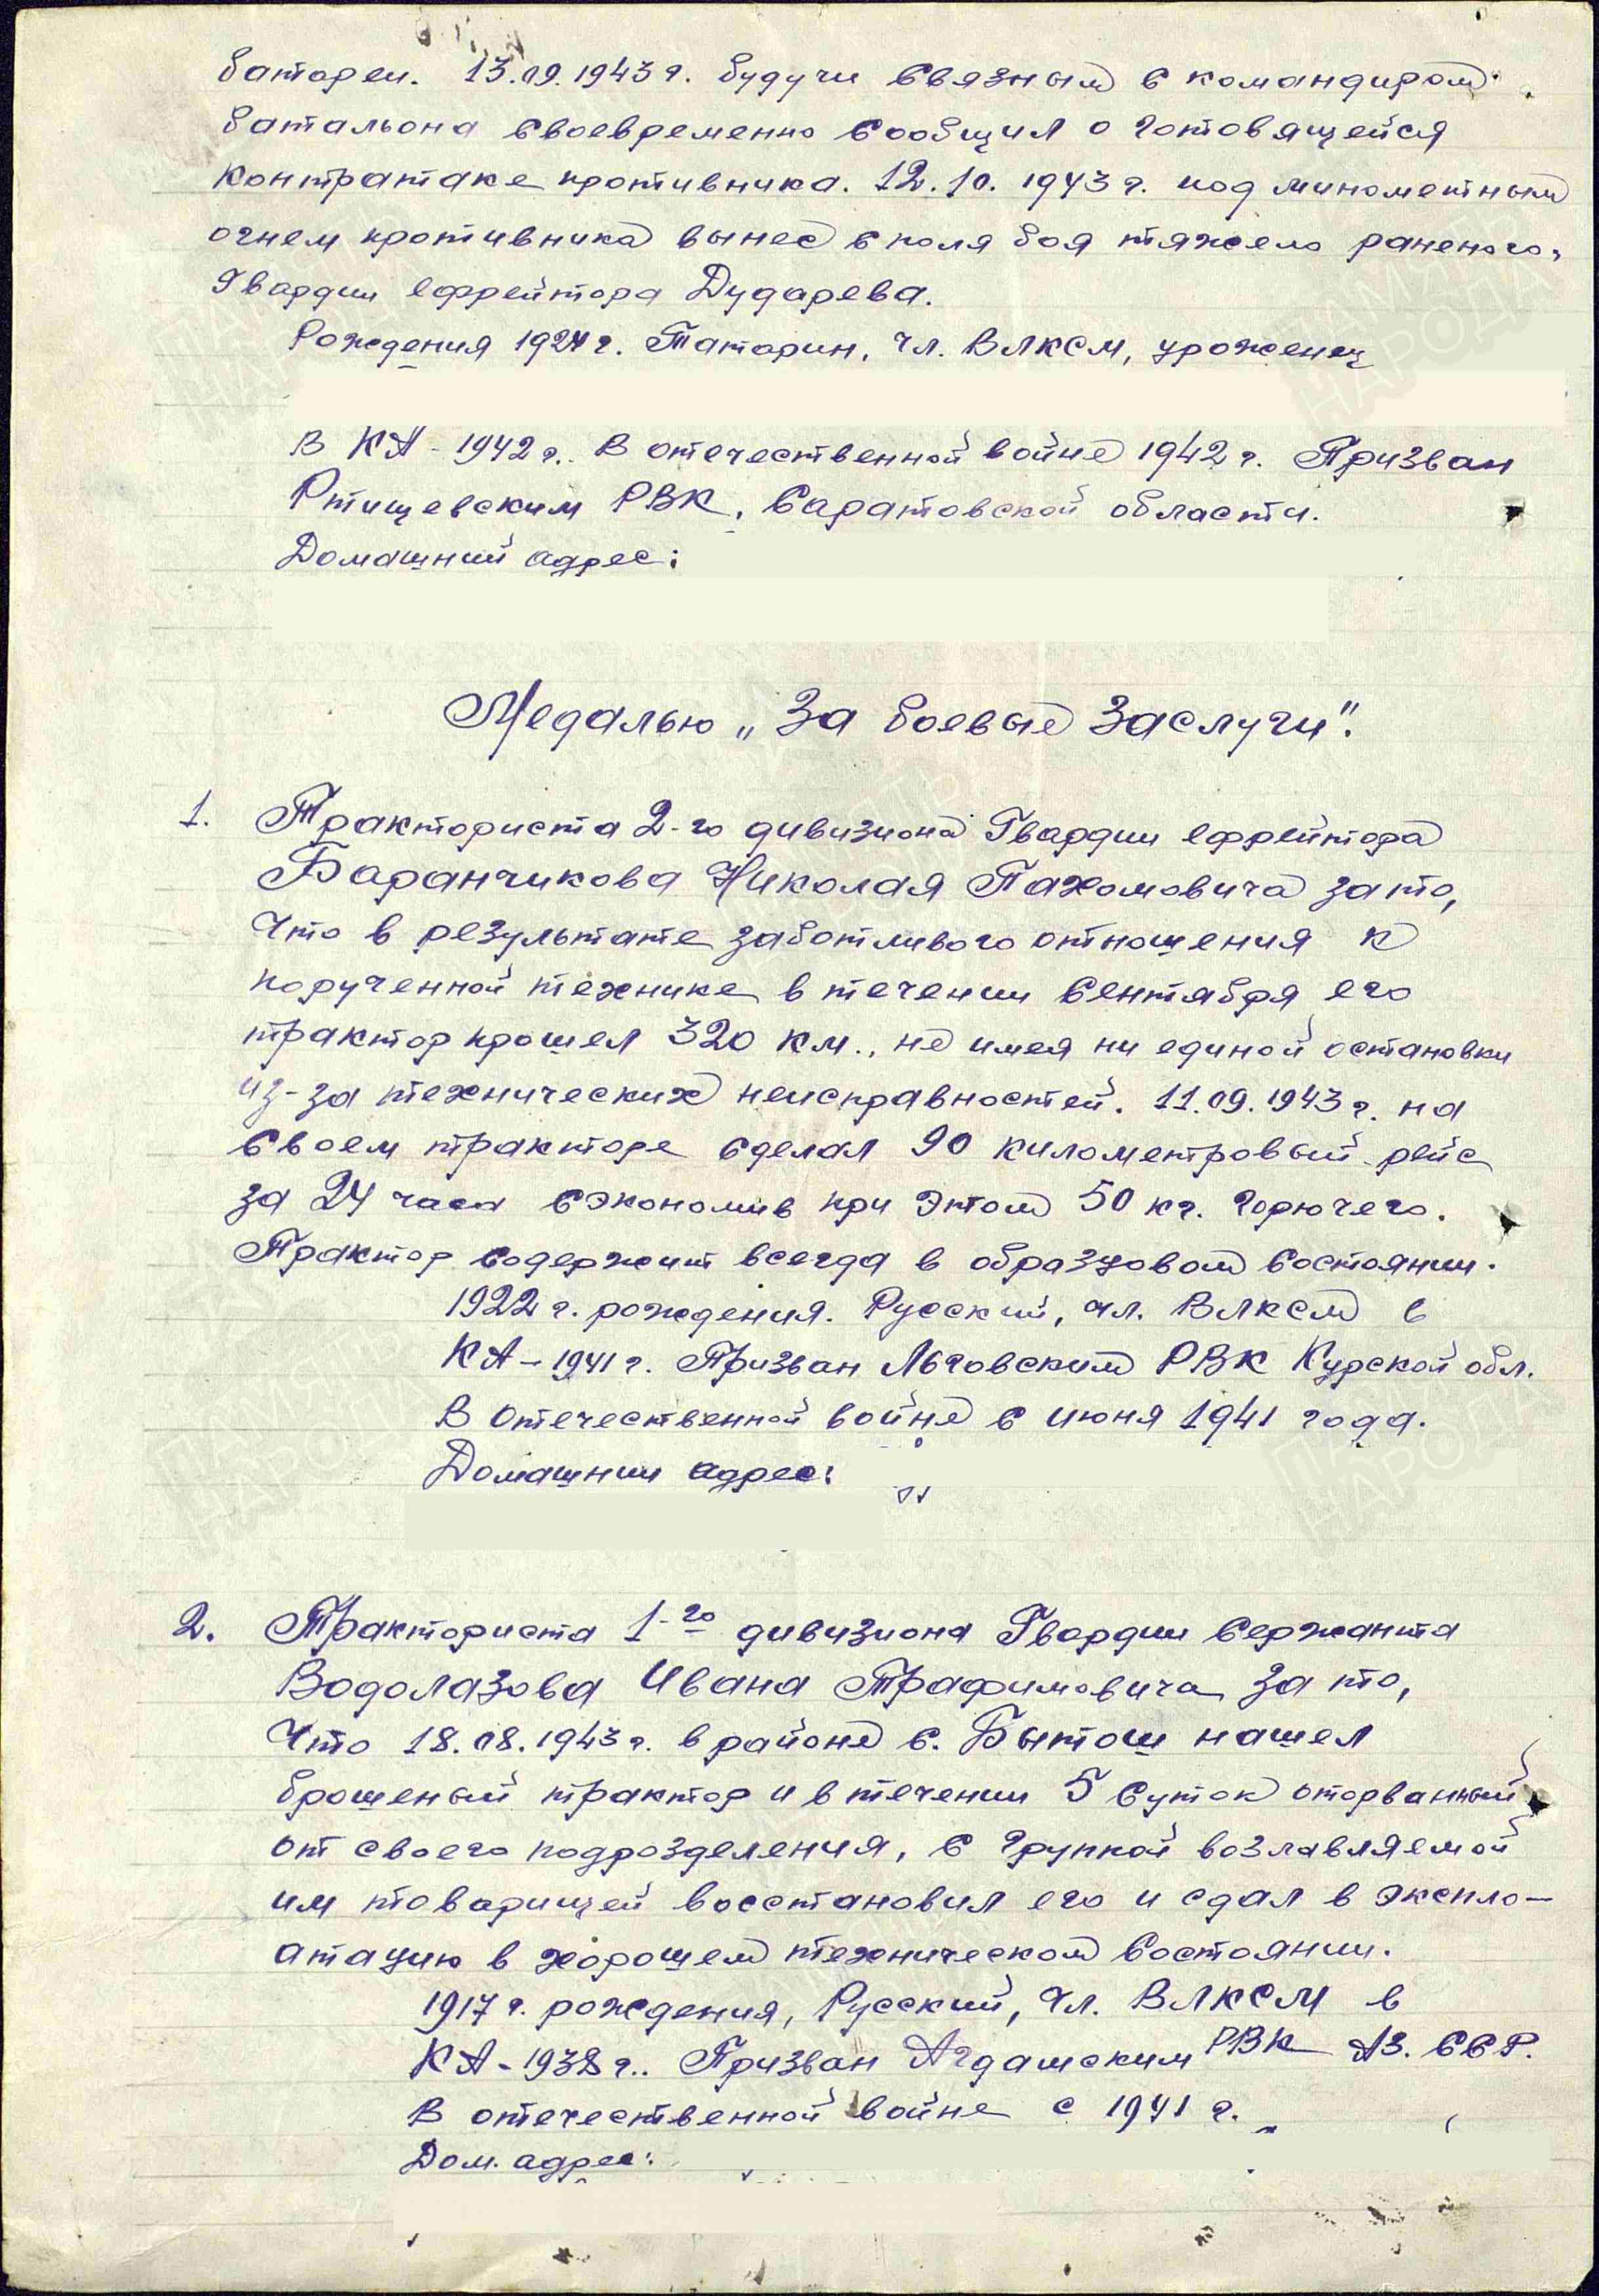 батареи. 13.09.1943 г. будучи связным с командиром
батальона своевременно сообщил о готовящейся
контратаке противника. 12.10.1943 г. под минометным
огнем противника вынес с поля боя тяжело раненого,
Гвардии ефрейтора Дударева.
Рождения 1924 г. Татарин, чл. ВЛКСМ, уроженец
В КА - 1942 г. В отечественной войне 1942 г. Призван
Ртищевским РВК, Саратовской области.
Домашний адрес:
Медалью „За боевые заслуги".
1. Тракториста 2-го дивизиона Гвардии ефрейтора
Баранчикова Николая Пахомовича за то,
что в результате заботливого отношения к
порученной технике в течении сентября его
трактор прошел 320 км., не имея ни единой остановки
из-за технических неисправностей. 11.09.1943 г. на
своем тракторе сделал 90 километровый рейс
за 24 часа сэкономив при этом 50 кг. горючего.
Трактор содержит всегда в образцовом состоянии.
1922 г. рождения. Русский, чл. ВЛКСМ в
КА - 1941 г. Призван Льговским РВК Курской обл.
В Отечественной войне с июня 1941 года.
Домашний адрес:
2. Тракториста 1-го дивизиона Гвардии Сержанта
Водолазова Ивана Трафимовича за то,
что 18.08.1943 г. в районе с. Бытош нашел
брошеный трактор и в течении 5 суток оторванный
от своего подразделения, с групкой возлавляемой
им товарищей восстановил его и сдал в экспло-
атацию в хорошем техническом состоянии.
1917 г. рождения, Русский, чл. ВЛКСМ в
КА - 1938 г. Призван Агдамским РВК АЗ. ССР.
В отечественной войне с 1941 г.
Дом. адрес:
ПАМЯТЬ НАРОДА